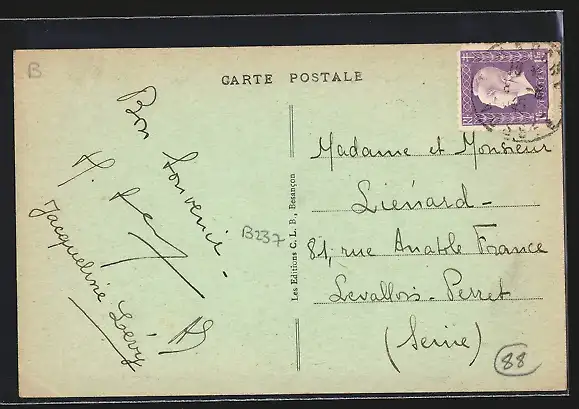 B
CARTE POSTALE
Bon Souvenir -
Jacqueline Lévy
B237
Les Editions C. L. B., Besançon
Madame et Monsieur
Liénard -
81, rue Anatole France
Levallois - Perret
(Seine)
88